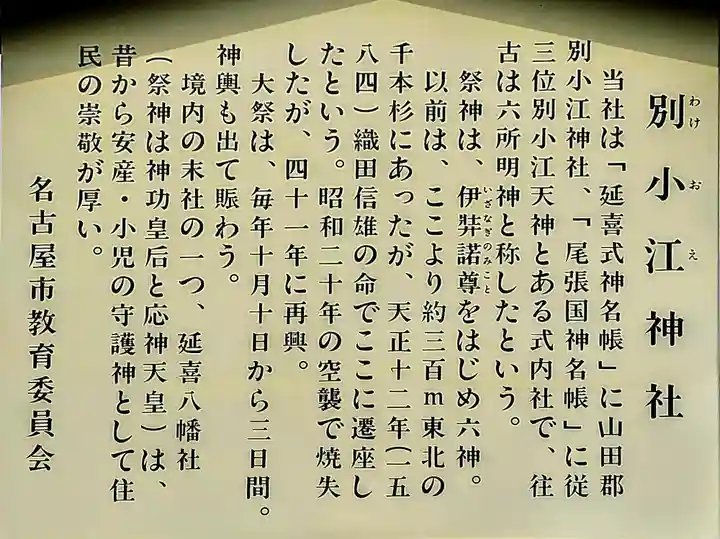 別小江神社
わけおえ
当社は「延喜式神名帳」に山田郡
別小江神社、「尾張国神名帳」に従
三位別小江天神とある式内社で、往
古は六所明神と称したという。
祭神は、伊弉諾尊をはじめ六神。
いざなぎのみこと
以前は、ここより約三百m東北の
千本杉にあったが、天正十二年(一五
八四)織田信雄の命でここに遷座し
たという。昭和二十年の空襲で焼失
したが、四十一年に再興。
大祭は、毎年十月十日から三日間。
神輿も出て賑わう。
境内の末社の一つ、延喜八幡社
(祭神は神功皇后と応神天皇)は、
昔から安産・小児の守護神として住
民の崇敬が厚い。
名古屋市教育委員会